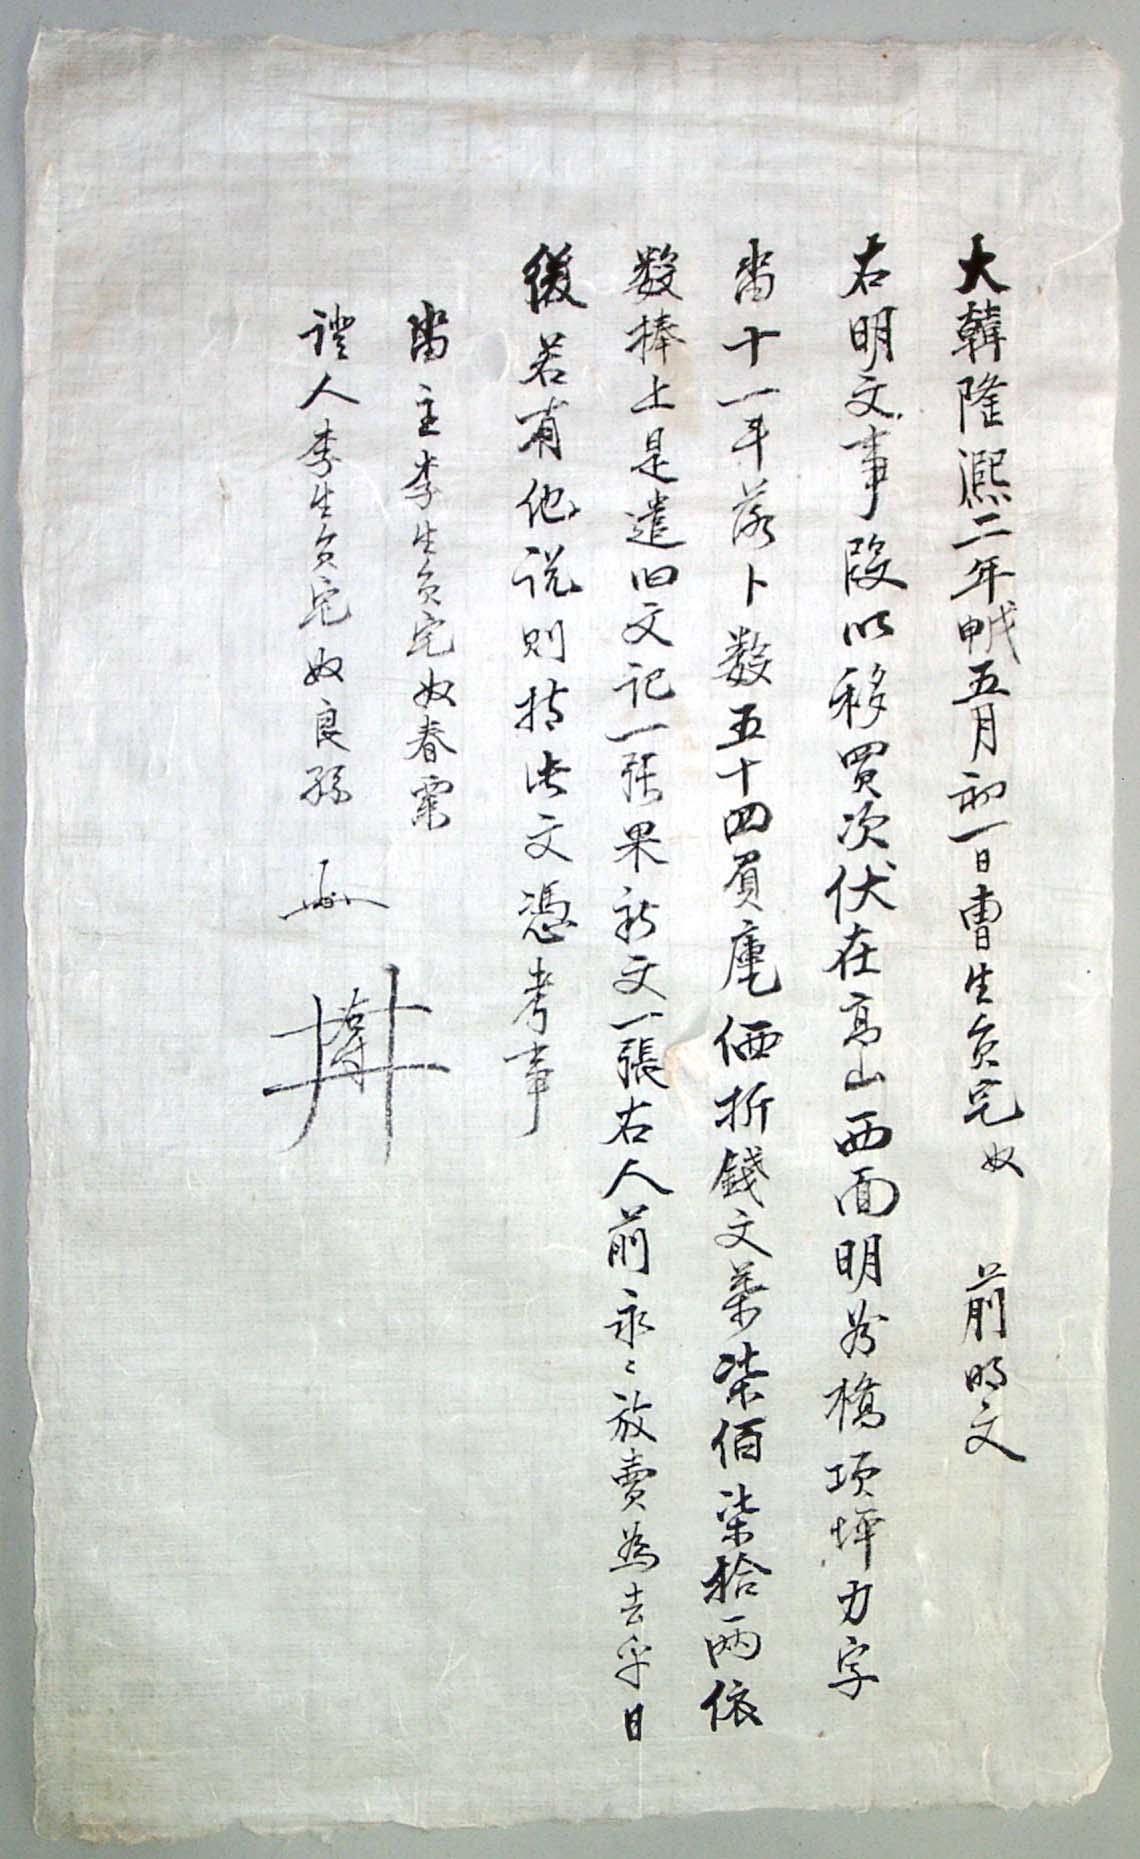 大韓隆熙二年戊申五月初一日曺生員宅奴 前明文
右明文事段以移買次伏在高山西面明谷橋項坪力字
畓十一斗落卜數五十四負庫価折錢文葉柒佰柒拾兩依
数捧上是遣旧文記一張果新文一張右人前永〻放賣為去乎日
後若有他說則持此文憑考事
畓主李生員宅奴春
證人李生員宅奴良孫